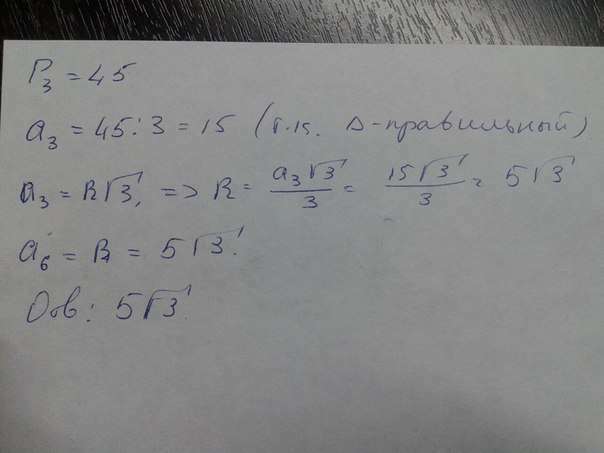 P₃ = 45
a₃ = 45:3 = 15 (т.к. Δ-правильный)
a₃ = R√3, => R = a₃√3/3 = 15√3/3 = 5√3
a₆ = R = 5√3.
Отв: 5√3.